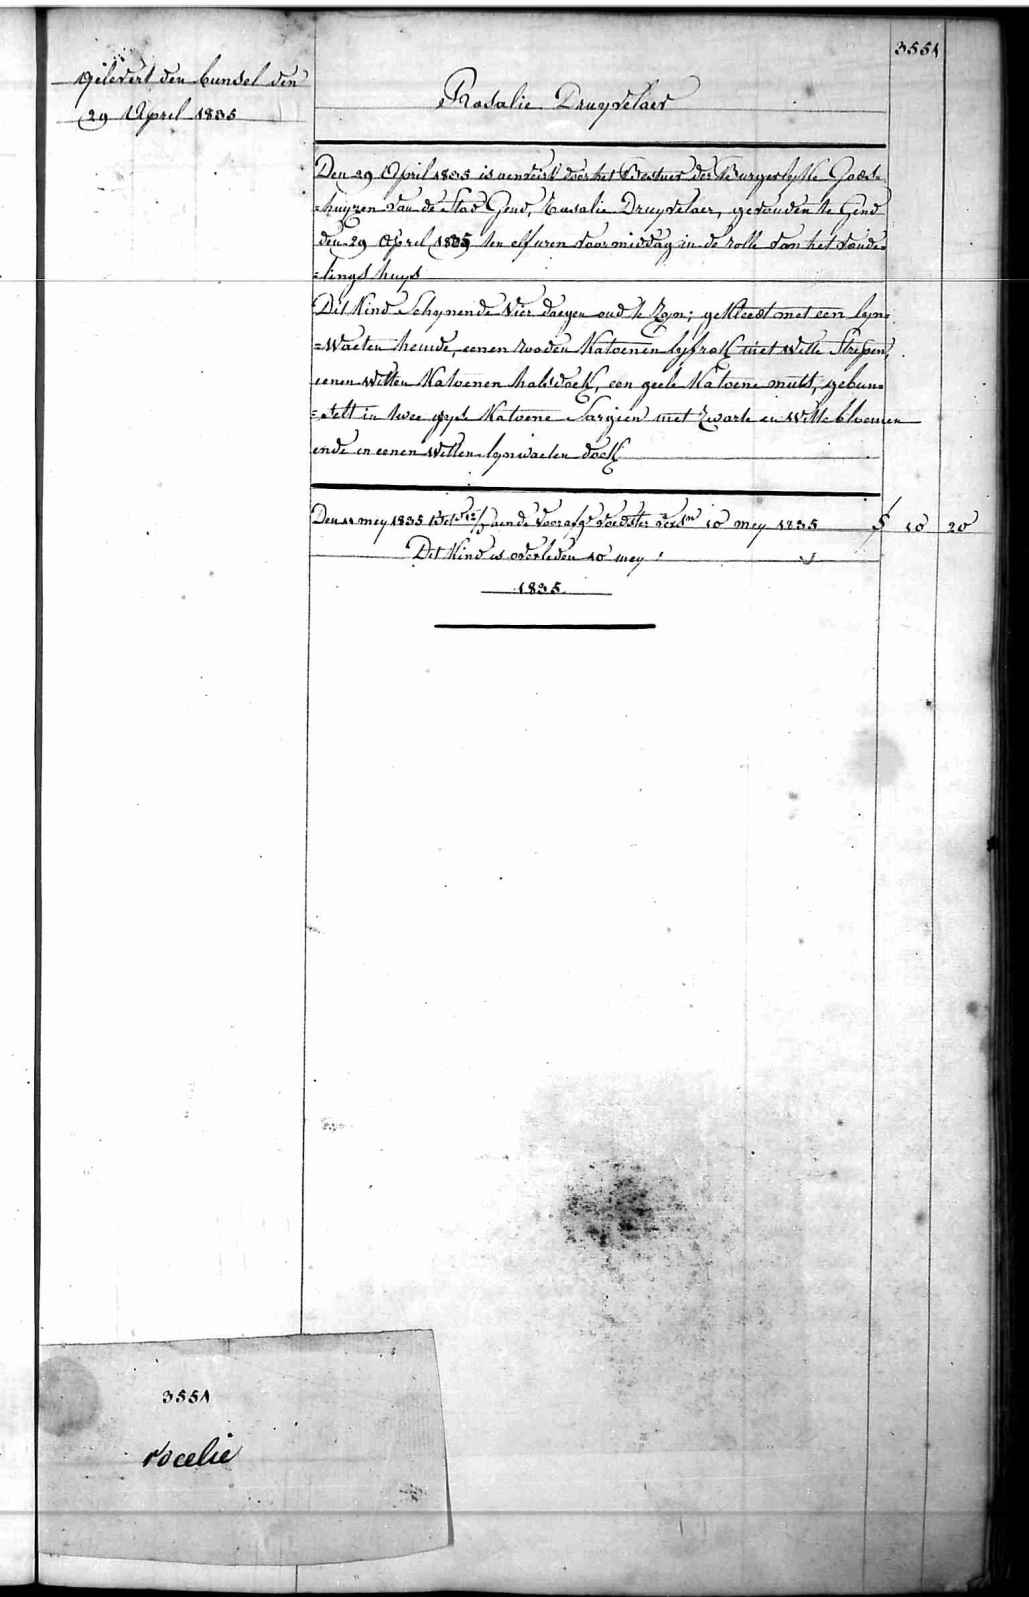 3551
Gelevert den bundel den
29 April 1835
Rosalie Druyvelaer
Den 29 April 1835 is aenveirt door het Bestuer der Burgerlykke Godts-
=huyzen van de Stad Gend, Rosalie Druyvelaer, gevonden te Gend
den 29 April 1835 ten elf uren voormiddag in de rolle van het vonde-
=lings huys
Dit Kind Schynende Vier daegen oud te Zyn; gekleedt met een lyn-
=waeten hemde, eenen rooden Katoenen lyfrok met Witte Strepen,
eenen Witten Katoenen halsdoek, een geele Katoene muts, gebun-
=delt in twee gryse Katoene Sargien met Zwarte en Witte bloemen
ende en eenen Witten lynwaeten doek
Den 11 mey 1835 aende voorafge voedster 10 mey 1835 § 10 20
Dit Kind is overleden 10 mey
1835.
3551